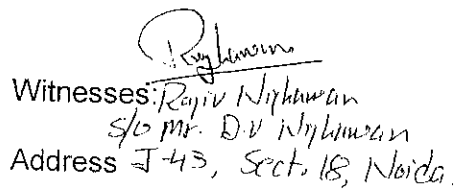 Witnesses: Rajiv Nijhawan
S/o Mr. D.V Nijhawan
Address J-43, Sect. 18, Noida.